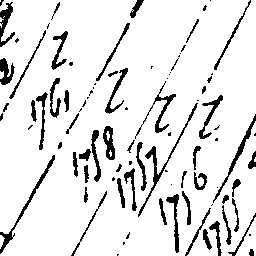 Z. 1761
Z. 1758
Z. 1757
Z. 1756
1755